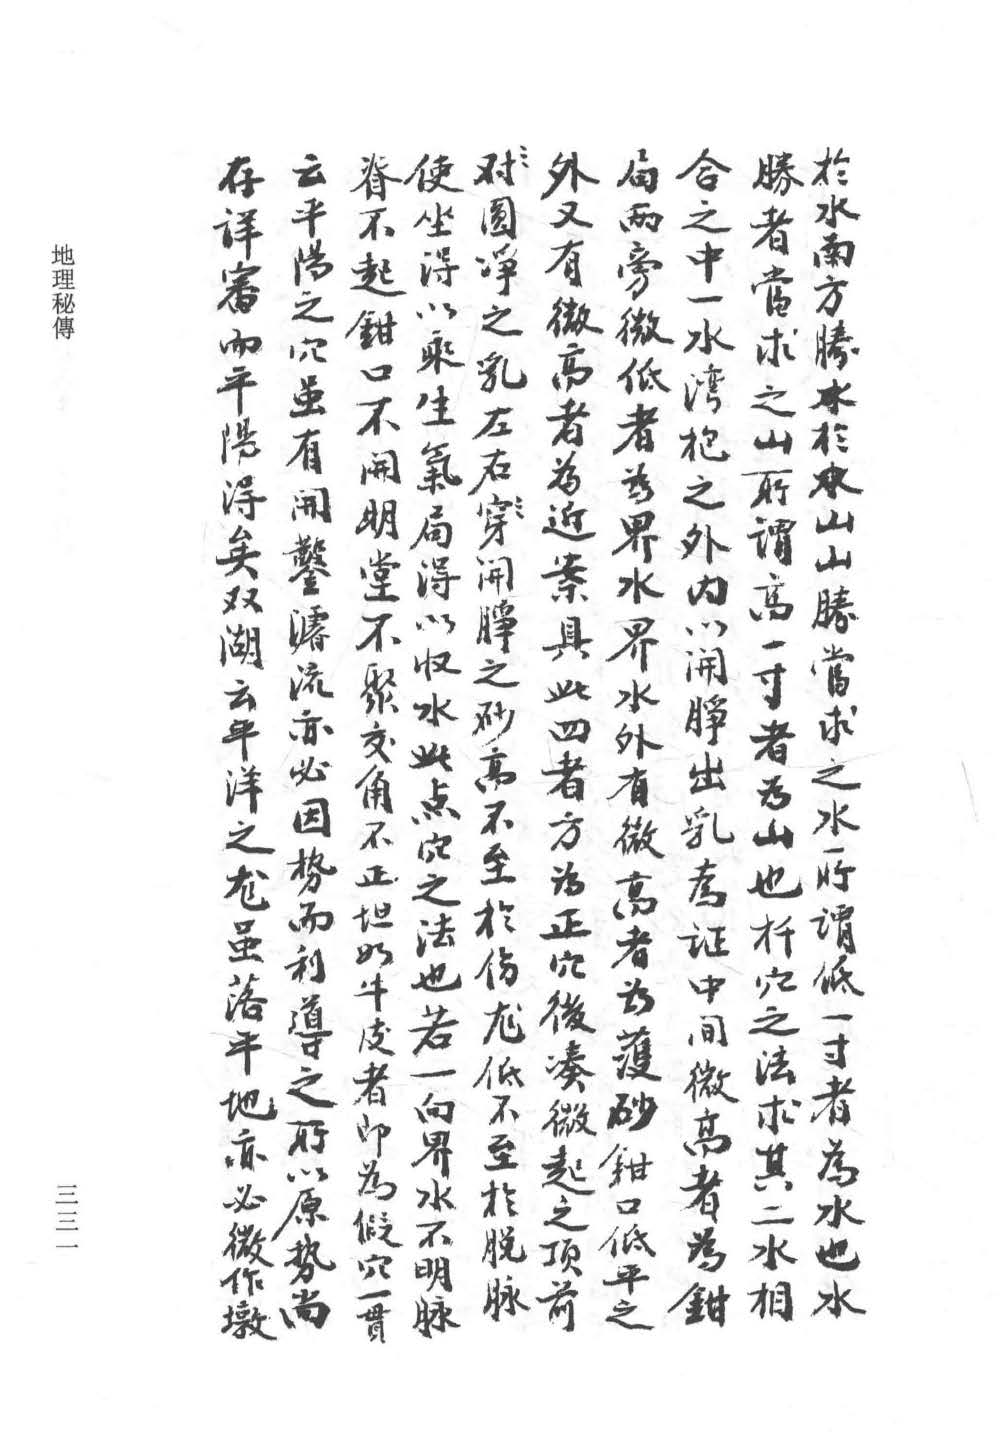 於水南方勝水於水山山勝當求之水所謂低一寸者為水也水
勝者當求之山所謂高一寸者为山也扦穴之法求其二水相
合之中一水湾抱之外内以開睜出乳為証中间微高者為鉗
局兩旁微低者為界水界水外有微高者为護砂鉗口低平之
外又有微高者為近案具此四者方为正穴後凑微起之顶前
对圆净之乳左右穿開睜之砂高不至於伤龙低不至於脱脉
使坐得以乘生氣局得以收水此点穴之法也若一向界水不明脉
脊不起鉗口不開明堂不聚交角不正坦如牛皮者即為假穴一貫
云平陽之穴虽有開鑿濬流亦必因势而利導之所以原势尚
存详審而平陽得矣双湖云平洋之龙虽落平地亦必微作墩
地理秘傳
三三一